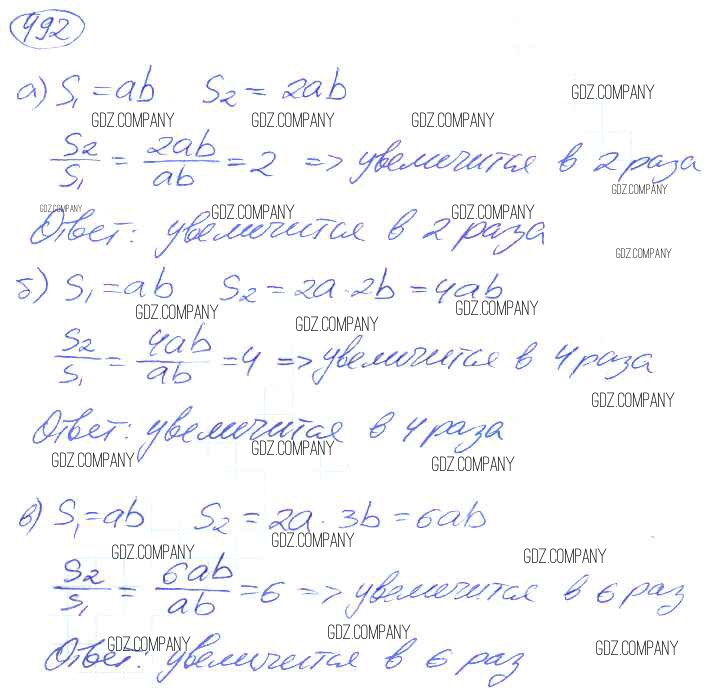 492
а) S₁ = ab S₂ = 2ab GDZ.COMPANY
GDZ.COMPANY GDZ.COMPANY GDZ.COMPANY
S₂/S₁ = 2ab/ab = 2 => увеличится в 2 раза
GDZ.COMPANY
GDZ.COMPANY GDZ.COMPANY GDZ.COMPANY
Ответ: увеличится в 2 раза
GDZ.COMPANY
б) S₁ = ab S₂ = 2a · 2b = 4ab
GDZ.COMPANY GDZ.COMPANY GDZ.COMPANY
S₂/S₁ = 4ab/ab = 4 => увеличится в 4 раза
GDZ.COMPANY
Ответ: увеличится в 4 раза
GDZ.COMPANY GDZ.COMPANY GDZ.COMPANY
в) S₁ = ab S₂ = 2a · 3b = 6ab
GDZ.COMPANY GDZ.COMPANY GDZ.COMPANY
S₂/S₁ = 6ab/ab = 6 => увеличится в 6 раз
GDZ.COMPANY GDZ.COMPANY GDZ.COMPANY
Ответ: увеличится в 6 раз